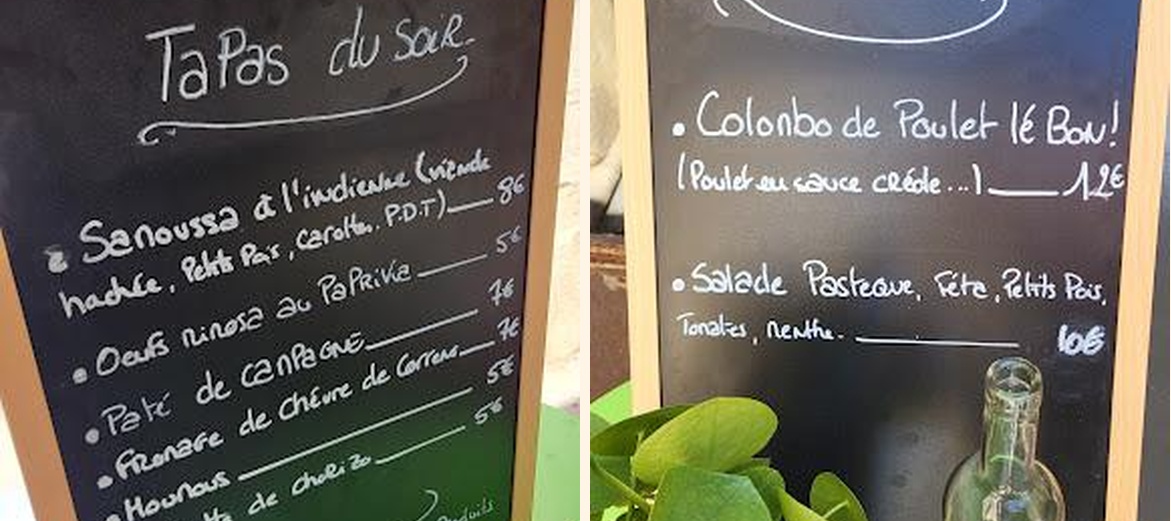 Tapas du soir.
• Sanoussa à l'indienne (viande
hachée, Petits Pois, carottes, P.D.T) 8€
• Oeufs mimosa au Paprika 5€
• Paté de campagne 7€
• Fromage de chèvre de Correns 7€
• Houmous 5€
de chorizo 5€
Produits
• Colonbo de Poulet lé Bon!
(Poulet en sauce créole...) 12€
• Salade Pasteque, Féta, Petits Pois,
Tomates, menthe. 10€